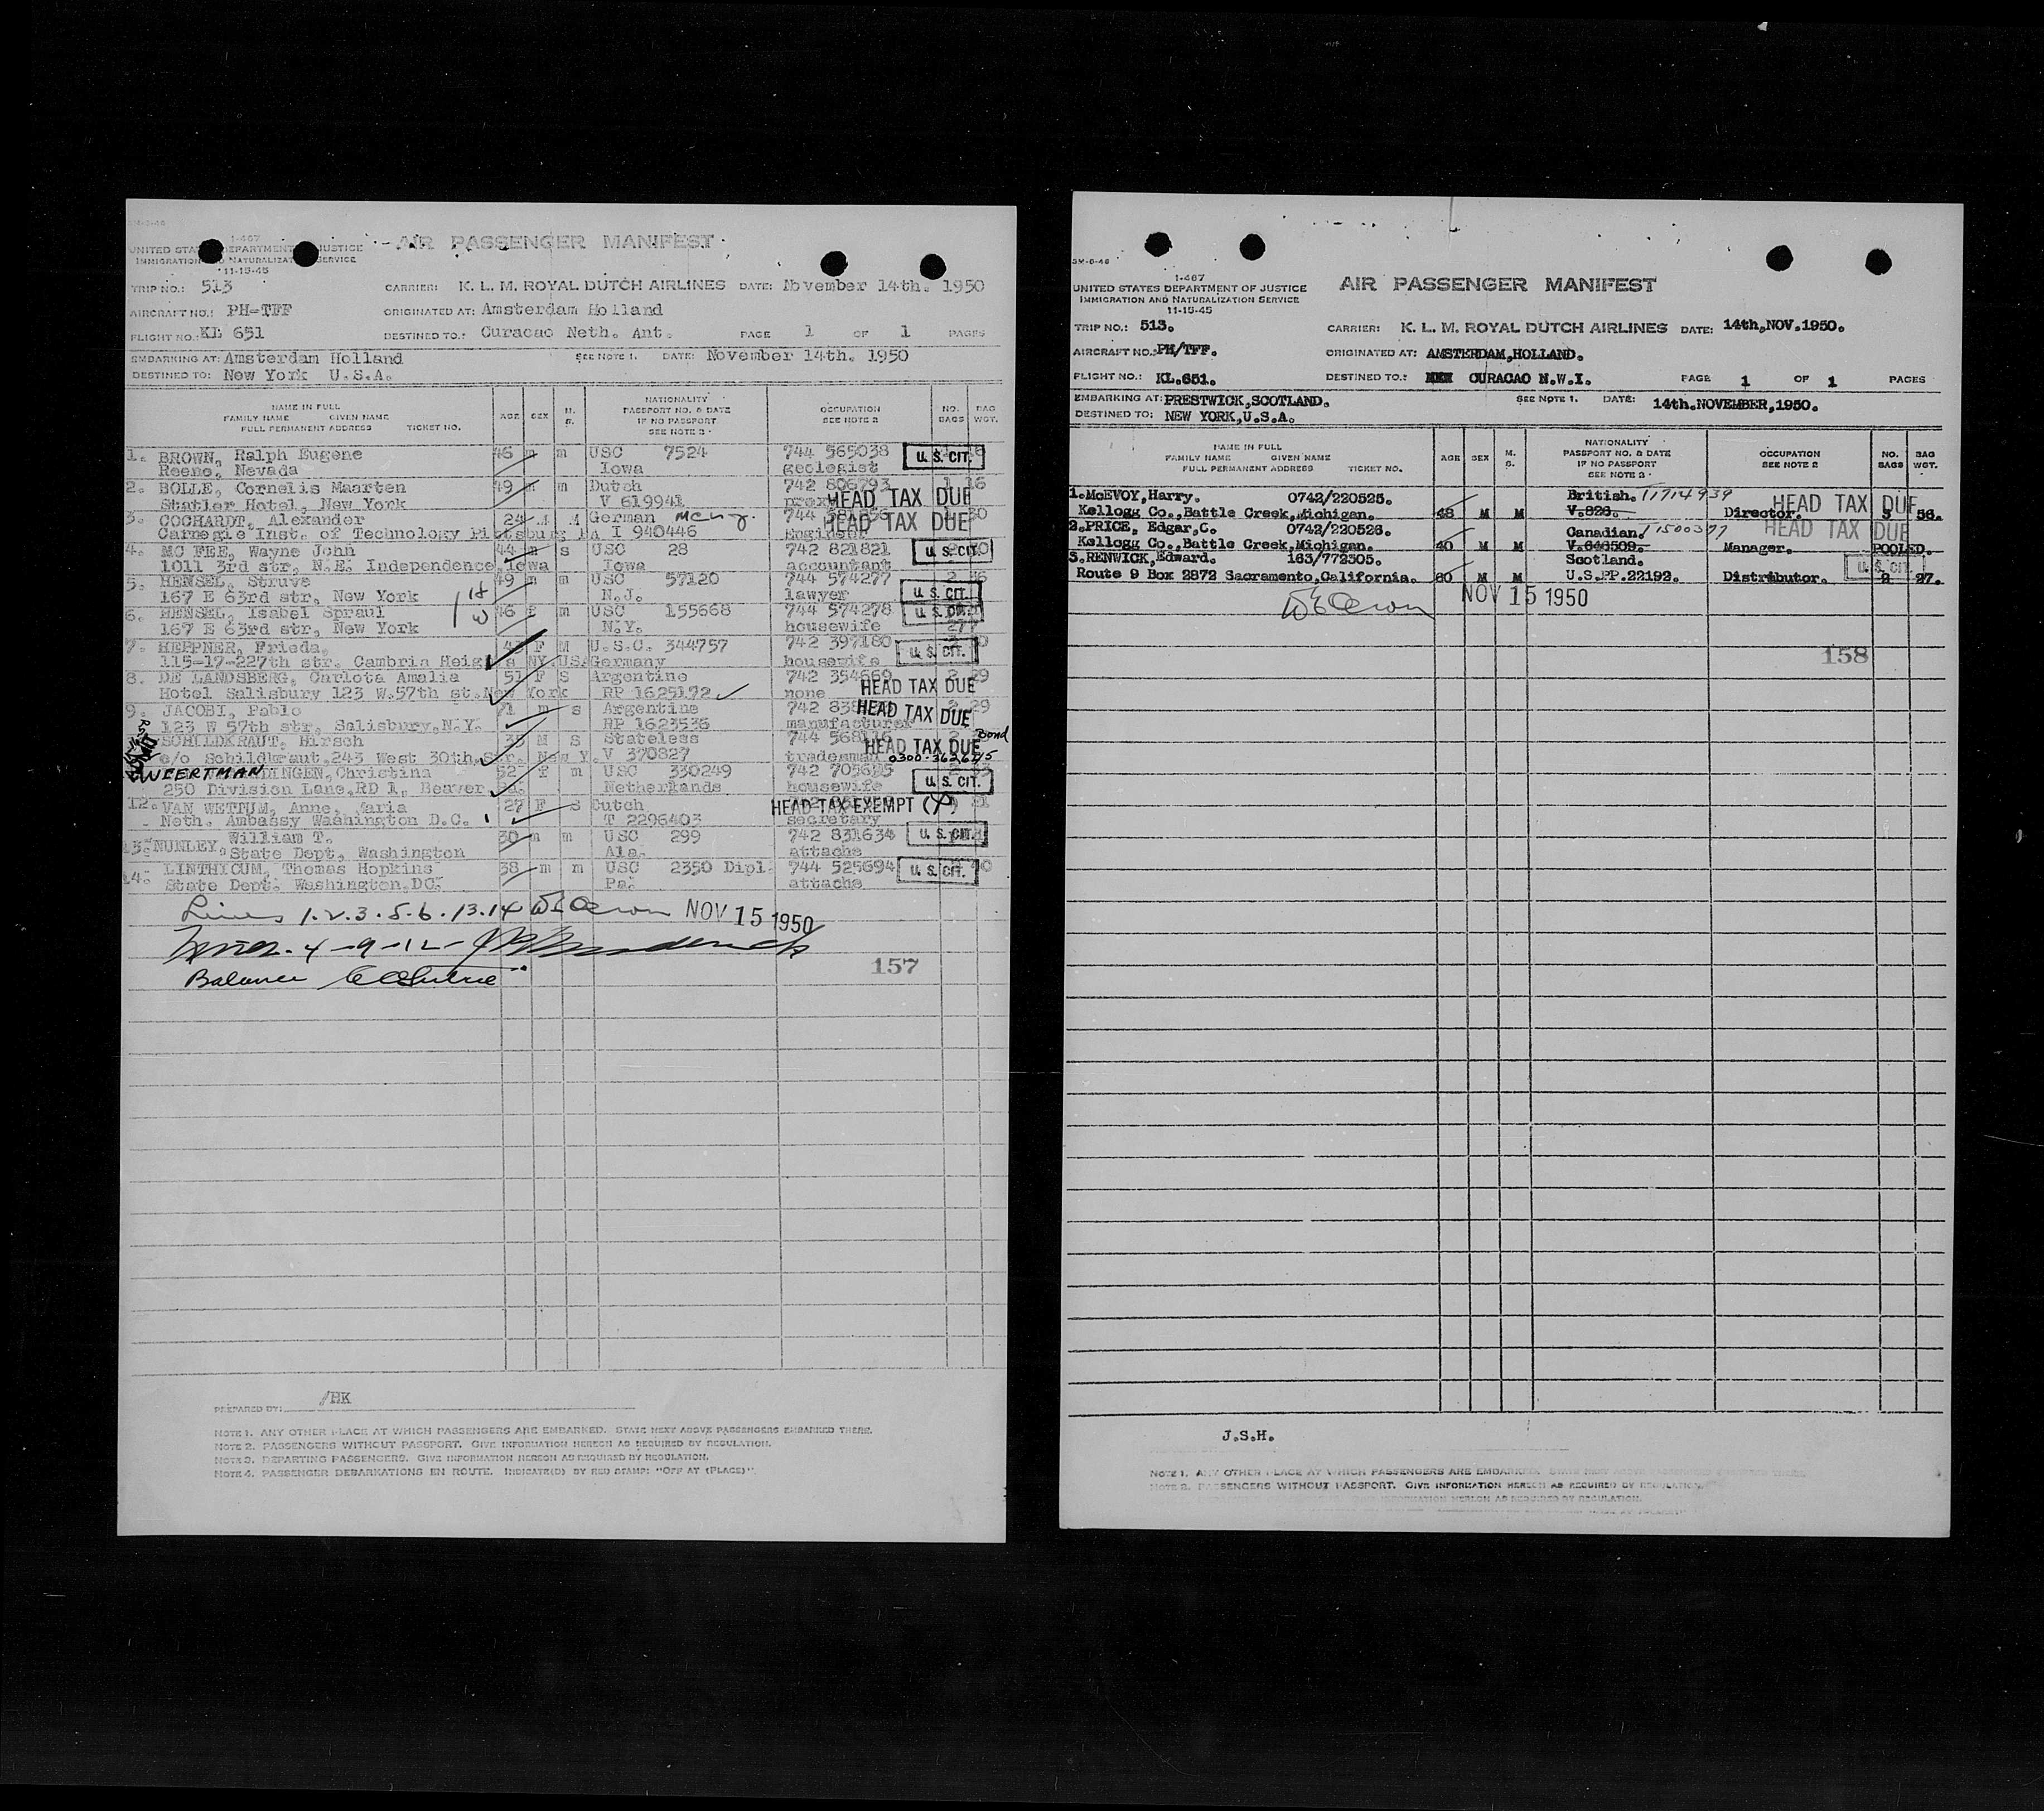 1-467
UNITED STATES DEPARTMENT OF JUSTICE
IMMIGRATION AND NATURALIZATION SERVICE
11-15-45
AIR PASSENGER MANIFEST
TRIP NO.: 513 CARRIER: K. L. M. ROYAL DUTCH AIRLINES DATE: November 14th. 1950
AIRCRAFT NO.: PH-TFF ORIGINATED AT: Amsterdam Holland
FLIGHT NO.: KL 651 DESTINED TO.: Curacao Neth. Ant. PAGE 1 OF 1 PAGES
EMBARKING AT: Amsterdam Holland SEE NOTE 1. DATE: November 14th. 1950
DESTINED TO: New York U.S.A.
NAME IN FULL
FAMILY NAME GIVEN NAME
FULL PERMANENT ADDRESS TICKET NO.
AGE SEX M. S.
NATIONALITY
PASSPORT NO. & DATE
IF NO PASSPORT
SEE NOTE 2
OCCUPATION
SEE NOTE 2
NO. BAGS BAG WGT.
1. BROWN, Ralph Eugene 46 m m USC 7524 744 565038 U.S. CIT.
Reeno, Nevada Iowa geologist
2. BOLLE, Cornelis Maarten 49 m m Dutch 742 806793 1 16
Statler Hotel, New York V 619941 HEAD TAX DUE
3. COCHARDT, Alexander 24 M M German 744 30
Carnegie Inst. of Technology Pittsburg PA I 940446 Engineer HEAD TAX DUE
4. MC FEE, Wayne John 44 m s USC 28 742 821821 U.S. CIT.
1011 3rd str, N.E. Independence, Iowa Iowa accountant
5. HENSEL, Struve 49 m m USC 57120 744 574277
167 E 63rd str, New York N.J. lawyer U.S. CIT.
H
W
6. HENSEL, Isabel Spraul 46 f m USC 155668 744 574278 U.S. CIT.
167 E 63rd str, New York N.Y. housewife 277
7. HEPPNER, Frieda, F M U.S.C. 344757 742 397180
115-17-227th str. Cambria Heights NY USA Germany housewife U.S. CIT.
8. DE LANDSBERG, Carlota Amalia 51 F S Argentine 742 354669 2 29
Hotel Salisbury 123 W.57th st. New York RP 1625172 none HEAD TAX DUE
9. JACOBI, Pablo 71 m s Argentine 742 29
123 W 57th str, Salisbury, N.Y. RP 1623536 manufacturer HEAD TAX DUE
SCHILDKRAUT, Hirsch 35 M S Stateless 744 568116 Bond
c/o Schildkraut, 245 West 30th. Str. New Y. V 370827 trademman HEAD TAX DUE
WEERTMAN Christina 52 f m USC 330249 742 705625
250 Division Lane, RD 1, Beaver Netherlands housewife U.S. CIT.
12. VAN WETTUM, Anne, Maria 27 F S Dutch HEAD TAX EXEMPT
Neth. Ambassy Washington D.C. T 2296403 secretary
13. NUNLEY, William T. 30 m m USC 299 742 831634 U.S. CIT.
State Dept, Washington Ala. attache
14. LINTHICUM, Thomas Hopkins 38 m m USC 2350 Dipl. 744 525694 U.S. CIT.
State Dept. Washington, DC. Pa. attache
Lines 1.2.3.5.6.13.14 NOV 15 1950
4-9-12
Balance
157
PREPARED BY: /HK
NOTE 1. ANY OTHER PLACE AT WHICH PASSENGERS ARE EMBARKED. STATE NEXT ABOVE PASSENGERS EMBARKED THERE.
NOTE 2. PASSENGERS WITHOUT PASSPORT. GIVE INFORMATION HEREON AS REQUIRED BY REGULATION.
NOTE 3. DEPARTING PASSENGERS. GIVE INFORMATION HEREON AS REQUIRED BY REGULATION.
NOTE 4. PASSENGER DEBARKATIONS EN ROUTE. INDICATE(D) BY RED STAMP: "OFF AT (PLACE)".
3M-6-46
1-467
UNITED STATES DEPARTMENT OF JUSTICE
IMMIGRATION AND NATURALIZATION SERVICE
11-15-45
AIR PASSENGER MANIFEST
TRIP NO.: 513. CARRIER: K. L. M. ROYAL DUTCH AIRLINES DATE: 14th.NOV.1950.
AIRCRAFT NO.: PH/TFF. ORIGINATED AT: AMSTERDAM,HOLLAND.
FLIGHT NO.: KL.651. DESTINED TO.: CURACAO N.W.I. PAGE 1 OF 1 PAGES
EMBARKING AT: PRESTWICK,SCOTLAND. SEE NOTE 1. DATE: 14th.NOVEMBER,1950.
DESTINED TO: NEW YORK,U.S.A.
NAME IN FULL
FAMILY NAME GIVEN NAME
FULL PERMANENT ADDRESS TICKET NO.
AGE SEX M. S.
NATIONALITY
PASSPORT NO. & DATE
IF NO PASSPORT
SEE NOTE 2
OCCUPATION
SEE NOTE 2
NO. BAGS BAG WGT.
1.McEVOY,Harry. 0742/220525. British. 11714939 HEAD TAX DUE
Kellogg Co.,Battle Creek,Michigan. 48 M M V.826. Director. 3 56.
2.PRICE, Edgar,C. 0742/220526. Canadian. 1500377 HEAD TAX DUE
Kellogg Co.,Battle Creek,Michigan. 40 M M V.646509. Manager. POOLED.
3.RENWICK,Edward. 163/772505. Scotland. U.S. CIT.
Route 9 Box 2872 Sacramento,California. 60 M M U.S.PP.22192. Distributor. 2 27.
NOV 15 1950
158
J.S.H.
NOTE 1. ANY OTHER PLACE AT WHICH PASSENGERS ARE EMBARKED.
NOTE 2. PASSENGERS WITHOUT PASSPORT. GIVE INFORMATION HEREON AS REQUIRED BY REGULATION.
INFORMATION HEREON AS REQUIRED BY REGULATION.